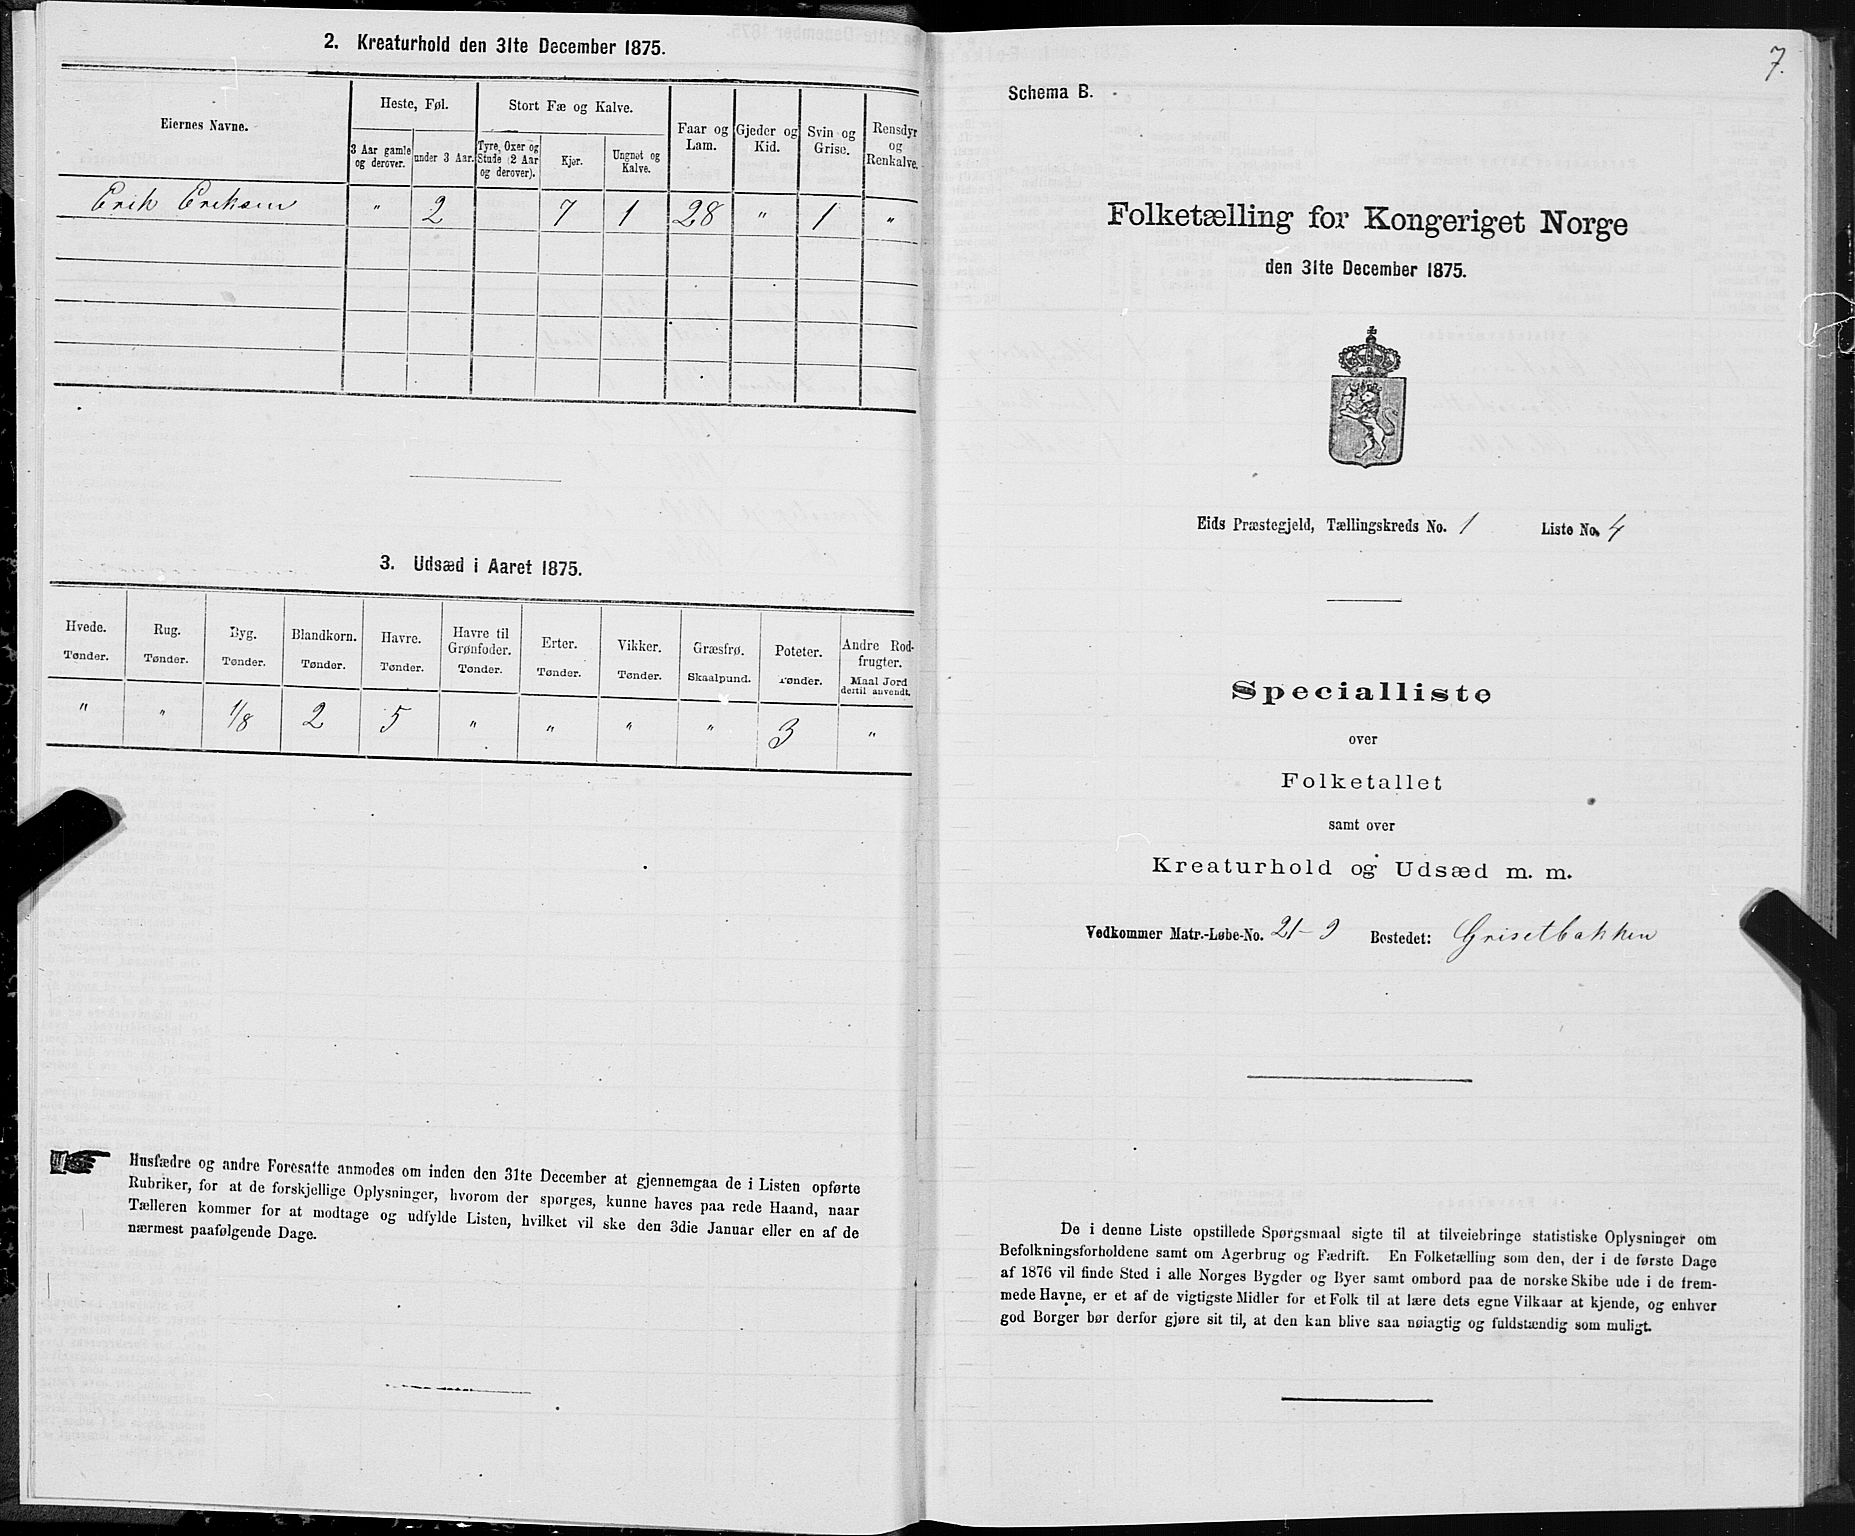 2. Kreaturhold den 31te December 1875.
Eiernes Navne.
Heste, Føl.
Stort Fæ og Kalve.
Faar og Lam.
Gjeder og Kid.
Svin og Grise.
Rensdyr og Renkalve.
3 Aar gamle og derover.
under 3 Aar.
Tyre, Oxer og Stude (2 Aar og derover).
Kjør.
Ungnøt og Kalve.
Erik Eriksen " 2 7 1 28 " 1 "
3. Udsæd i Aaret 1875.
Hvede. Rug. Byg. Blandkorn. Havre. Havre til Grønfoder. Erter. Vikker. Græsfrø. Poteter. Andre Rodfrugter.
Tønder. Tønder. Tønder. Tønder. Tønder. Tønder. Tønder. Tønder. Skaalpund. Tønder. Maal Jord dertil anvendt.
" " 1/8 2 5 " " " " 3 "
Husfædre og andre Foresatte anmodes om inden den 31te December at gjennemgaa de i Listen opførte
Rubriker, for at de forskjellige Oplysninger, hvorom der spørges, kunne haves paa rede Haand, naar
Tælleren kommer for at modtage og udfylde Listen, hvilket vil ske den 3die Januar eller en af de
nærmest paafølgende Dage.
7.
Schema B.
Folketælling for Kongeriget Norge
den 31te December 1875.
Eids Præstegjeld, Tællingskreds No. 1 Liste No. 4
Specialliste
over
Folketallet
samt over
Kreaturhold og Udsæd m. m.
Vedkommer Matr.-Løbe-No. 21-9 Bostedet: Grisetbakken
De i denne Liste opstillede Spørgsmaal sigte til at tilveiebringe statistiske Oplysninger om
Befolkningsforholdene samt om Agerbrug og Fædrift. En Folketælling som den, der i de første Dage
af 1876 vil finde Sted i alle Norges Bygder og Byer samt ombord paa de norske Skibe ude i de frem-
mede Havne, er et af de vigtigste Midler for et Folk til at lære dets egne Vilkaar at kjende, og enhver
god Borger bør derfor gjøre sit til, at den kan blive saa nøiagtig og fuldstændig som muligt.